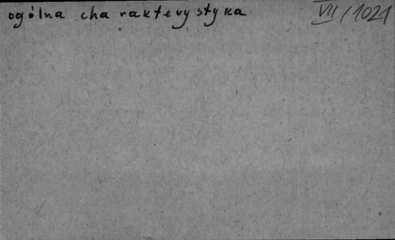 ogólna charakterystyka VII/1021